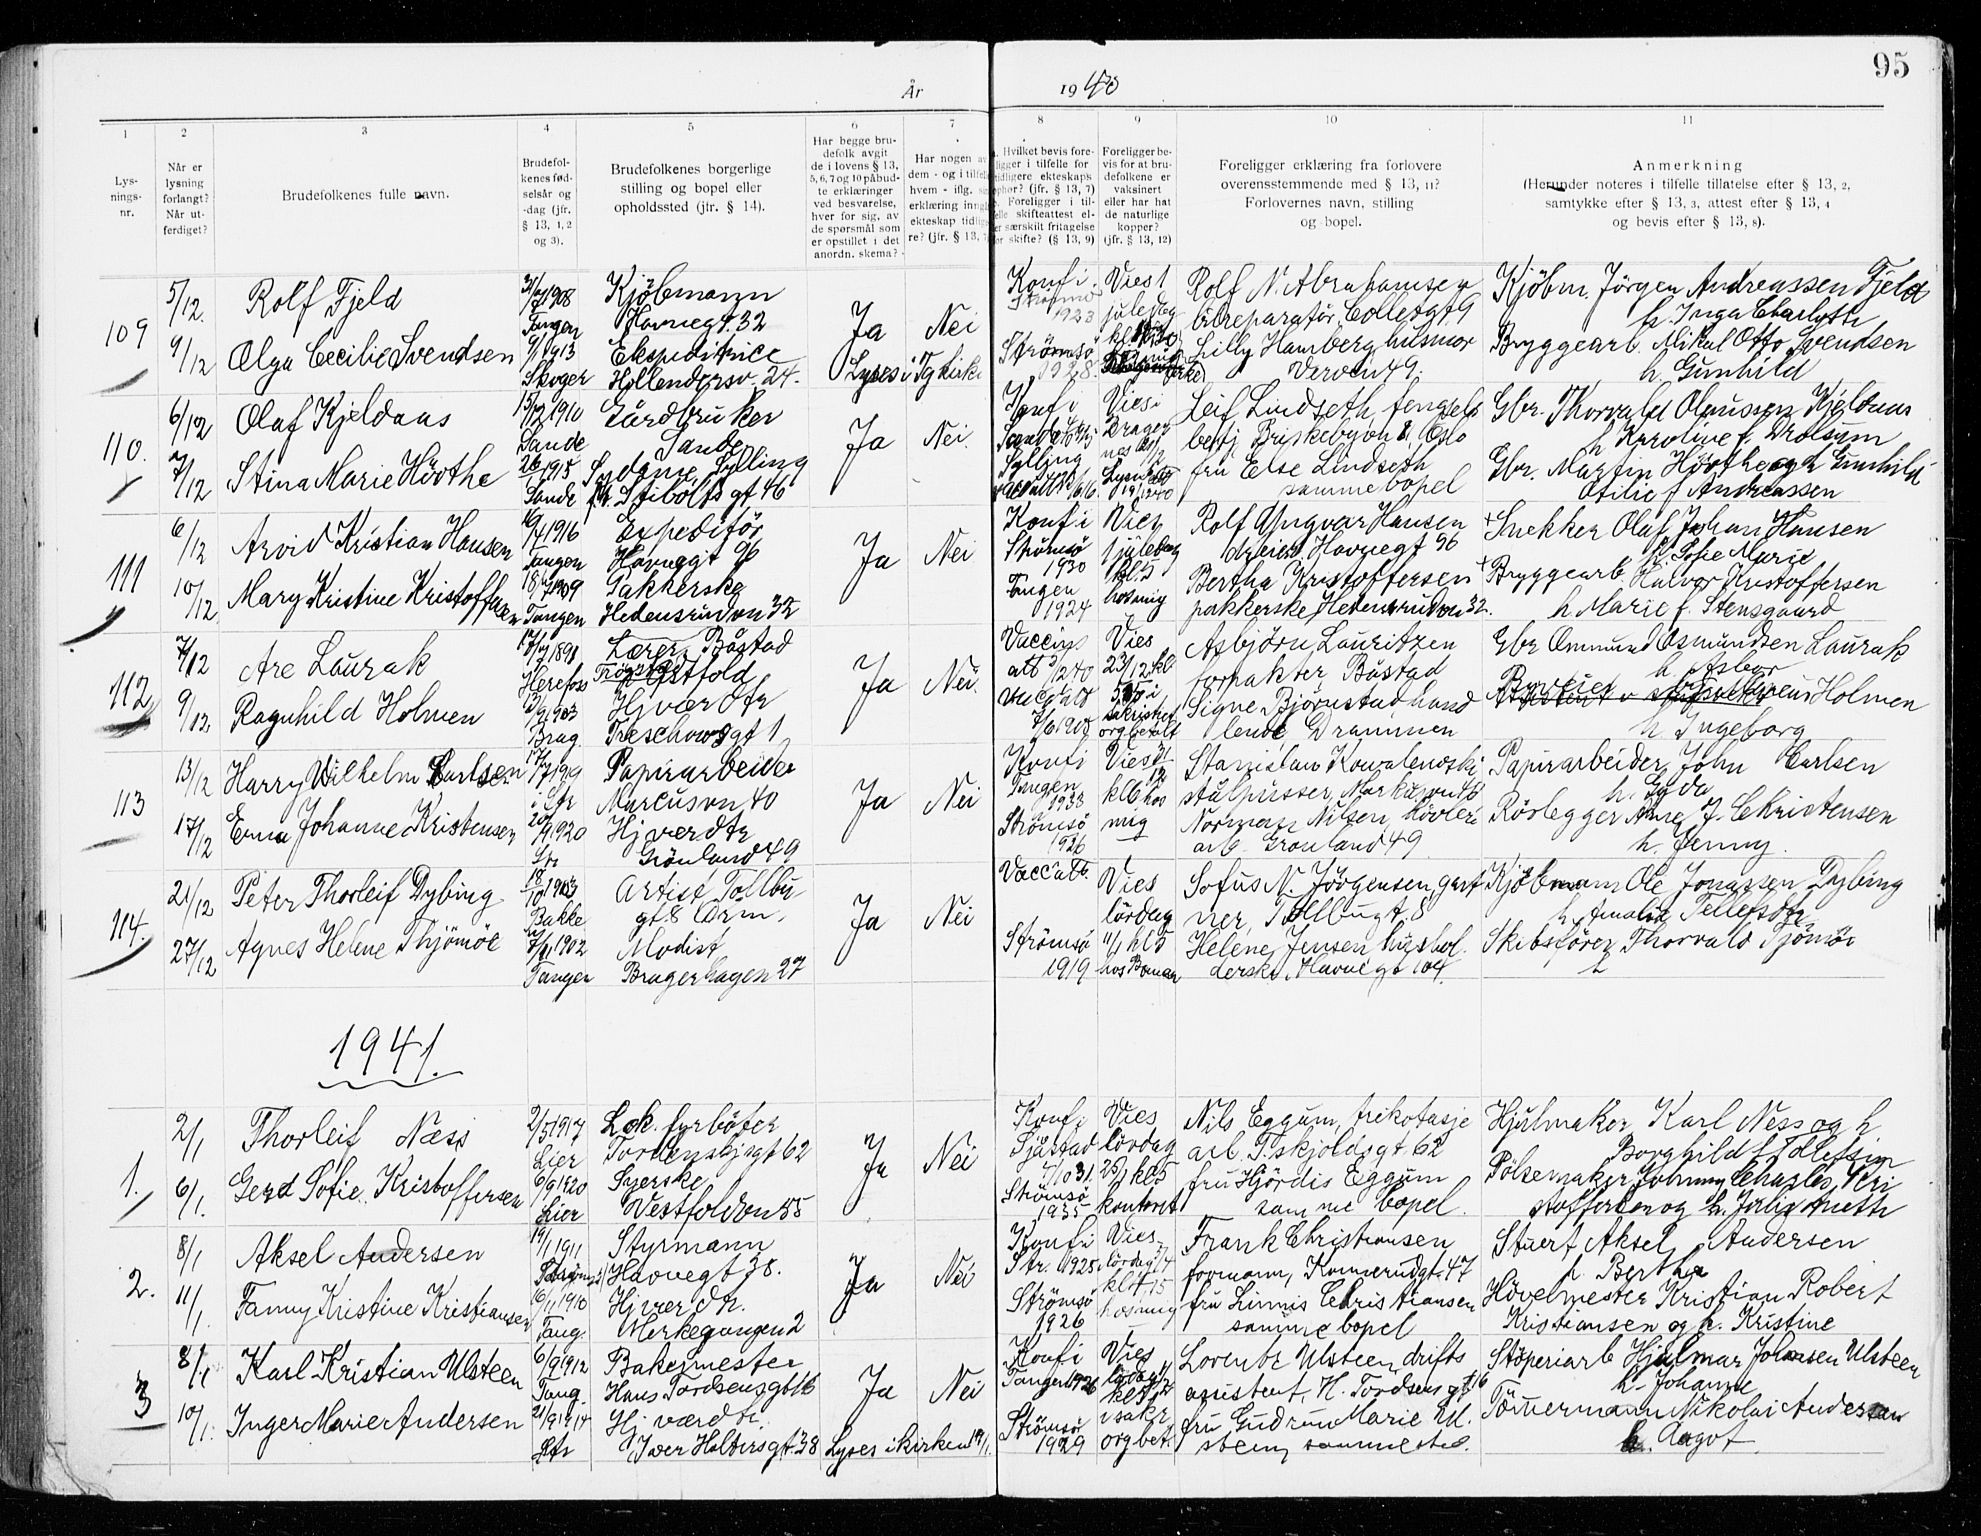 95
År 1940
1 2 3 4 5 6 7 8 9 10 11
Lys-
nings-
nr.
Når er
lysning
forlangt?
Når ut-
ferdiget?
Brudefolkenes fulle navn.
Brudefol-
kenes fød-
selsår og
-dag (jfr.
§ 13, 1, 2
og 3).
Brudefolkenes borgerlige
stilling og bopel eller
opholdssted (jfr. § 14).
Har begge bru-
defolk avgit
de i lovens § 13,
5, 6, 7 og 10 påbud-
te erklæringer
ved besvarelse,
hver for sig, av
de spørsmål som
er opstillet i det
anordn. skema?
Har nogen av
dem - og i tilfelle
hvem - iflg.
erklæring inngått
ekteskap tidlige-
re? (jfr. § 13,
Hvilket bevis fore-
ligger i tilfelle for
tidligere ekteskaps
ophør? (jfr. § 13, 7)
Foreligger i til-
felle skifteattest el-
ler særskilt fritagelse
for skifte? (§ 13, 9)
Foreligger be-
vis for at bru-
defolkene er
vaksinert
eller har hat
de naturlige
kopper?
(jfr. § 13, 12)
Foreligger erklæring fra forlovere
overensstemmende med § 13, 11?
Forlovernes navn, stilling
og bopel.
Anmerkning
(Herunder noteres i tilfelle tillatelse efter § 13, 2,
samtykke efter § 13, 3, attest efter § 13, 4
og bevis efter § 13, 8).
109
5/12.
9/12
Rolf Fjeld
Olga Cecilie Svendsen
1908
Tangen
1913
Skoger
Kjöbmann
Havnegt. 32
Ekspeditrice
Hollendersv. 24.
Ja Nei
Lyses i Tg kirke
Konf i
1923
Strömsö
1928.
Vies 1
juledag
Rolf N. Abrahamsen
bilreparatör, Colletsgt 9
Lilly Hamberg husmor
Verven 49.
Kjöbm. Jörgen Andreassen Fjeld
h. Inga Charlotte
Bryggearb. Mikal Otto Svendsen
h. Gunhild
110.
6/12
7/12
Olaf Kjeldaas
Stina Marie Hövthe
15/12 1910
Sande
1915
Sande
Gårdbruker
Sande
Sydame, Sylling
Stibolts gt 46
Ja Nei
Konf i
Sande
Sylling
Vies i
Drager
nes
Leif Lindseth fengsels
betj. Briskebyvn 8, Oslo
fru Else Lindseth
samme bopel
Gbr. Thorvald Olaussen Kjeldaas
h Karoline f. Drolsum
Gbr. Martin Hövthe og h Gunhild
Otilie f Andreassen
111
6/12
10/12
Arvid Kristian Hansen
Mary Kristine Kristoffersen
1916
Tangen
1909
Tangen
Expeditör
Havnegt 96
Pakkerske
Hedensrudvn 32
Ja Nei
Konf i
Strömsö
1930
Tangen
1924
Vies
1 juledag
kl. 5
hos mig
Rolf Yngvar Hansen
dreier, Havnegt 96
Bertha Kristoffersen
pakkerske, Hedensrudvn 32.
+ Snekker Olaf Johan Hansen
h. Sofie Marie
+ Bryggearb Halvor Kristoffersen
h Marie f. Stensgaard
112
7/12
9/12
Are Laurak
Ragnhild Holmen
Herefoss
1903
Brag.
Lærer, Båstad
Östfold
Hj vær dtr
Treschowsgt 1
Ja Nei
Vaccin
att
1907
Vies
23/12 kl
5 i
sakristiet
org betalt
Asbjörn Lauritzen
forpakter Båstad
Signe Björnstad hand
lende, Drammen
Gbr Ommund Osmundsen Laurak
h. Asbor
Holmen
h. Ingeborg
113
13/12
17/12
Harry Wilhelm Carlsen
Erna Johanne Kristensen
1919
i Str
1920
Str
Papirarbeider
Marcusvn 40
Hj verdtr
Grönland 49
Ja Nei
Konf i
Tangen
1933
Strömsö
1926
Vies
kl 6 hos
mig
Stanislaw Kowalenoski
stålpusser, Markusvn 40
Norman Nilsen, hövleri
arb. Grönland 49
Papirarbeider John Carlsen
h. Gyda
Rörlegger Arne J. Christensen
h. Jenny.
114
21/12
27/12
Peter Thorleif Dybing
Agnes Helene Thjömöe
Bakke
1902
Tangen
Artist Tollbu
gt 8 Drm.
Modist
Bragerhagen 27
Ja Nei
Vacc att.
Strömsö
1919
Vies
lördag
11/1 kl 5
hos Boman
Sofus N. Jörgensen, gart
ner, Tollbugt. 8
Helene Jensen hushol
derske, Havnegt 104.
Kjöbmann Ole Jonassen Dybing
h Amalia Tellefsdtr
Skibsförer Thorvald Tjömöe
h
1941.
1.
2/1
6/1.
Thorleif Næss
Gerd Sofie Kristoffersen
2/5 1917
Lier
6/9 1920
Lier
Lok. fyrböter
Tordenskj.gt 62
Syerske
Westfoldvn 55
Ja Nei
Konf i
Sjåstad
4/10 31.
Strömsö
1935
Vies
lördag
25/1 kl 5
kontoret
Nils Eggum, trikotasje
arb. T.skjoldsgt 62
fru Hjördis Eggum
samme bopel.
Hjulmaker Karl Ness og h
Borghild f. Tollefsen
Pölsemaker Johnny Charles Kri
stoffersen og h. Julia Anette
2.
8/1
11/1
Aksel Andersen
Fanny Kristine Kristiansen
19/1 1911
6/11 1910
Tang.
Styrmann
Havnegt 38.
Hj vær dtr.
Merkegangen 2
Ja Nei
Konf i
Str. 1925
Strömsö
1926
Vies
lördag
kl 4,15
hos mig
Frank Christiansen
formann, Konnerudgt. 47
fru Linnis Christiansen
samme bopel
Stuert Aksel Andersen
h. Bertha
Hövelmester Kristian Robert
Kristiansen og h. Kristine
3
8/1
10/1.
Karl Kristian Ulsteen
Inger Marie Andersen
6/9 1912
Tang.
21/9 1914
Str
Bakermester
Hans Tordsensgt 16
Hj værdtr.
Iver Holtersgt. 38
Ja Nei
Lyses i kirken 12/1.
Konf i
Tangen 1926
Strömsö
1929
Vies
lördag
i sakr
org bet.
Lorentz Ulsteen, drifts
assistent, H. Tordsensgt 16
fru Gudrun Marie Ul
steen, samme sted.
Stöperiarb Hjalmar Johansen Ulsteen
h. Johanne
Törnermann Nikolai Andersen
h. Aagot